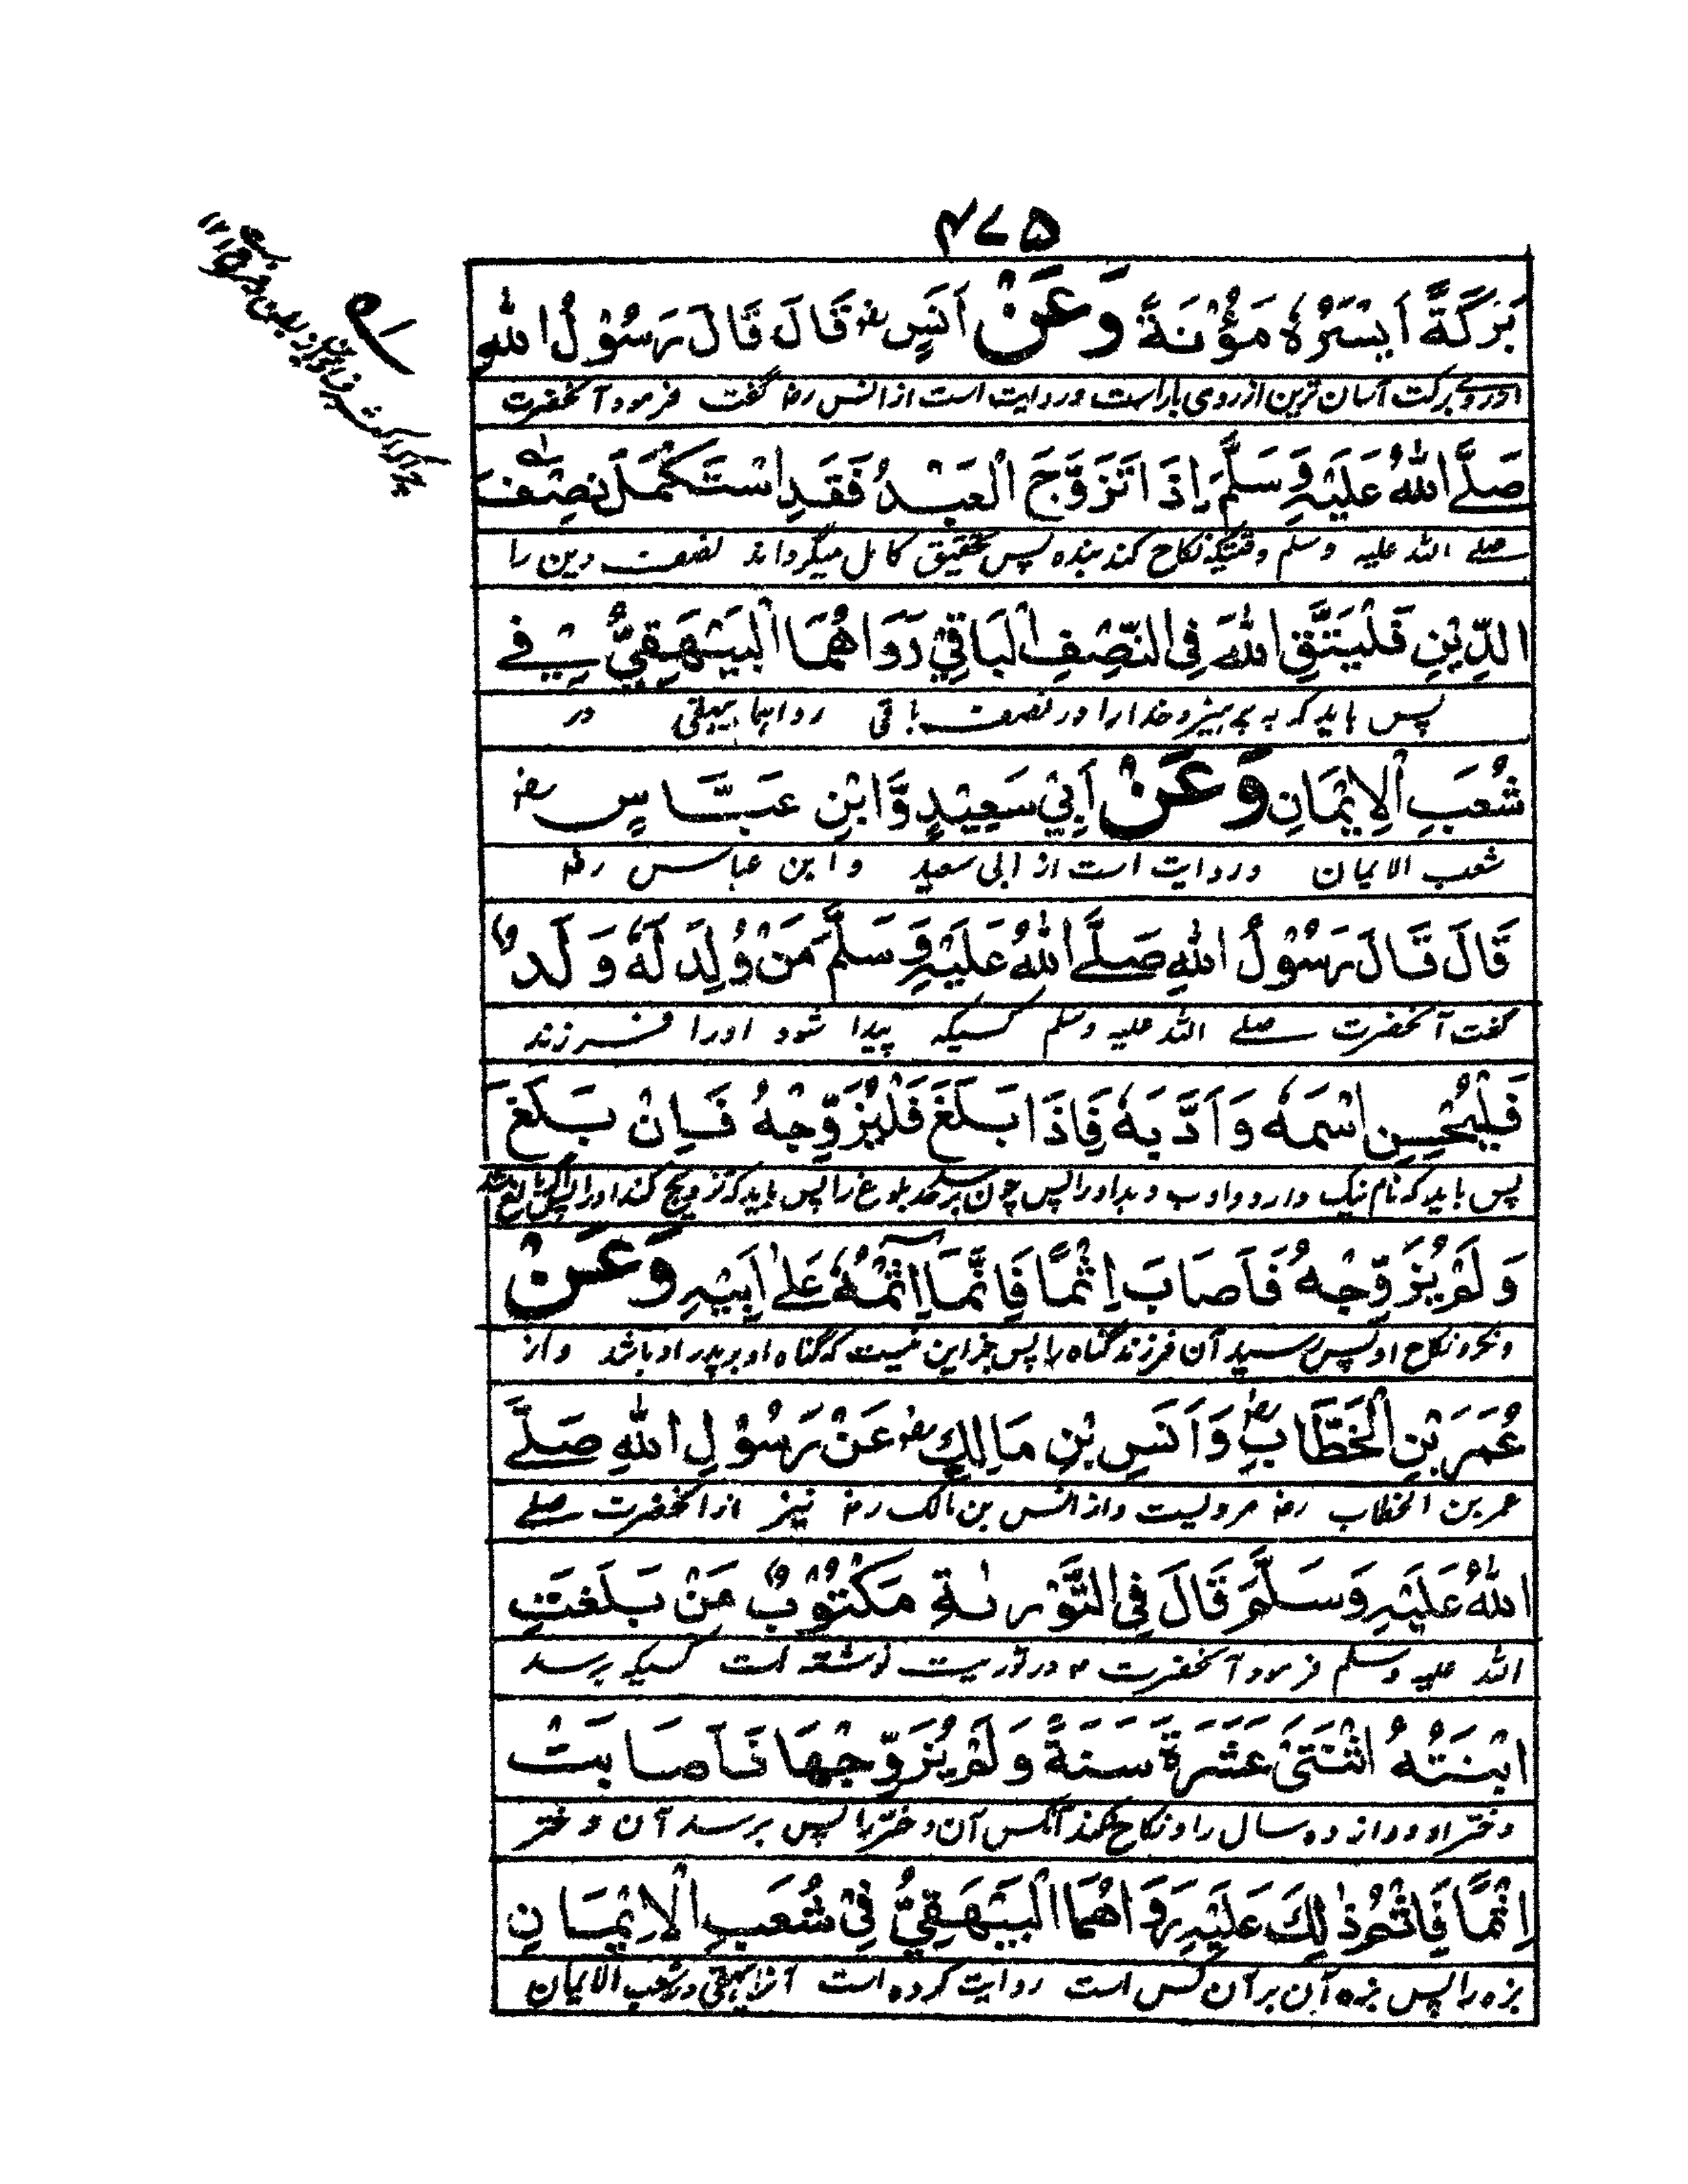 ۴۷۵
بَرَكَةً اَيْسَرُهٗ مَؤُنَةً وَعَنْ اَنَسٍ رض قَالَ قَالَ رَسُوْلُ اللهِ
ازروی برکت آسان ترین ازروی بار است وروایت است از انس رض گفت فرمود آنحضرت
صَلَّے اللهُ عَلَيْهِ وَسَلَّمَ اِذَا تَزَوَّجَ الْعَبْدُ فَقَدِ اسْتَكْمَلَ نِصْفَ
صلے اللہ علیہ وسلم وقتیکہ نکاح کند بندہ پس تحقیق کامل میگرداند نصف دین را
الدِّيْنِ فَلْيَتَّقِ اللهَ فِي النِّصْفِ الْبَاقِيْ رَوَاهُمَا الْبَيْهَقِيُّ فِے
پس باید کہ بہ پرہیزد خدارا در نصف باقی رواہما بیہقی در
شُعَبِ الْاِيْمَانِ وَعَنْ اَبِيْ سَعِيْدٍ وَّابْنِ عَبَّاسٍ رض
شعب الایمان وروایت است از ابی سعید وابن عباس رض
قَالَ قَالَ رَسُوْلُ اللهِ صَلَّے اللهُ عَلَيْهِ وَسَلَّمَ مَنْ وُلِدَ لَهٗ وَلَدٌ
گفت آنحضرت صلے اللہ علیہ وسلم کسیکہ پیدا شود اورا فرزند
فَلْيُحْسِنِ اسْمَهٗ وَاَدَّبَهٗ فَاِذَا بَلَغَ فَلْيُزَوِّجْهُ فَاِنْ بَلَغَ
پس باید کہ نام نیک دارد وادب دہد اورا پس چون برسد بحد بلوغ را پس باید کہ تزویج کند اورا پس اگر بالغ شد
وَلَمْ يُزَوِّجْهُ فَاَصَابَ اِثْمًا فَاِنَّمَا اِثْمُهٗ عَلٰے اَبِيْهِ وَعَنْ
ونکرد نکاح او پس رسید آن فرزند گناہ را پس جز این نیست کہ گناہ او بر پدر او باشد واز
عُمَرَ بْنِ الْخَطَّابِ رض وَاَنَسِ بْنِ مَالِكٍ رض عَنْ رَسُوْلِ اللهِ صَلَّے
عمر بن الخطاب رض مرویست واز انس بن مالک رض نیز از آنحضرت صلے
اللهُ عَلَيْهِ وَسَلَّمَ قَالَ فِي التَّوْرٰىةِ مَكْتُوْبٌ مَنْ بَلَغَتِ
اللہ علیہ وسلم فرمود آنحضرت در توریت نوشتہ است کسیکہ برسد
ابْنَتُهُ اثْنَتَيْ عَشَرَةَ سَنَةً وَلَمْ يُزَوِّجْهَا فَاَصَابَتْ
دختر او دوازدہ سال را ونکاح نکند آنکس آن دختر را پس برسد آن دختر
اِثْمًا فَاِثْمُ ذٰلِكَ عَلَيْهِ رَوَاهُمَا الْبَيْهَقِيُّ فِيْ شُعَبِ الْاِيْمَانِ
بزہ را پس بزہ آن بر آن کس است روایت کردہ است آنرا بیہقی در شعب الایمان